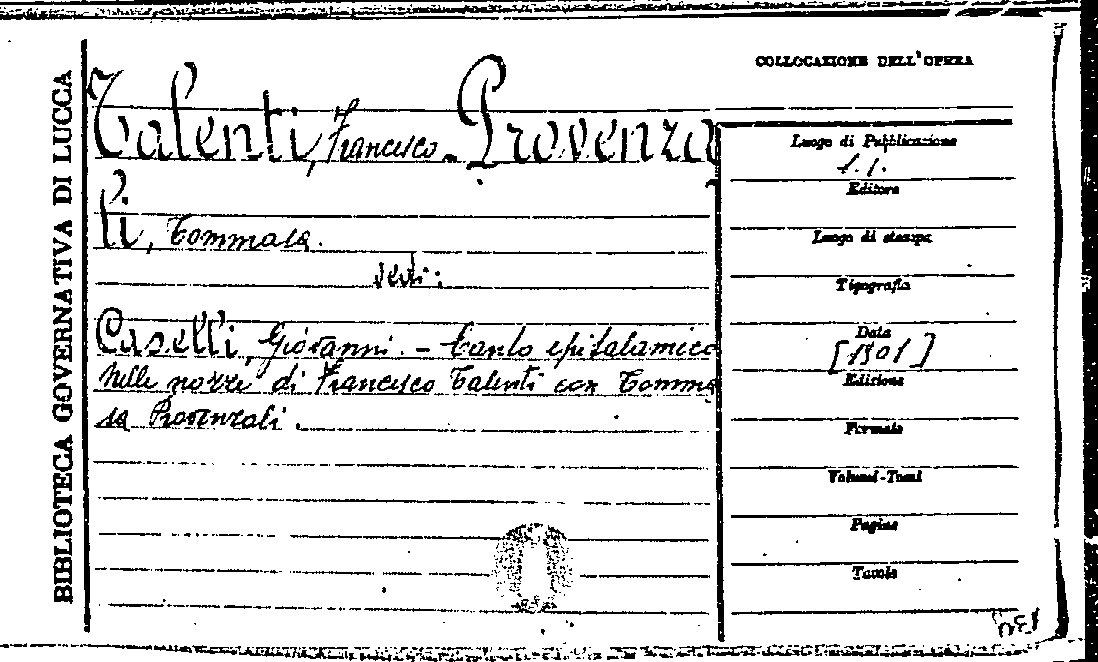 BIBLIOTECA GOVERNATIVA DI LUCCA
COLLOCAZIONE DELL'OPERA
Talenti, Francesco - Provenza
li, Tommasa.
vedi:
Caselli, Giovanni. - Canto epitalamico
nelle nozze di Francesco Talenti con Tomma
sa Provenzali.
Luogo di Pubblicazione
s.l.
Editore
Luogo di stampa
Tipografia
Data
[1801]
Edizione
Formato
Volumi-Tomi
Pagine
Tavole